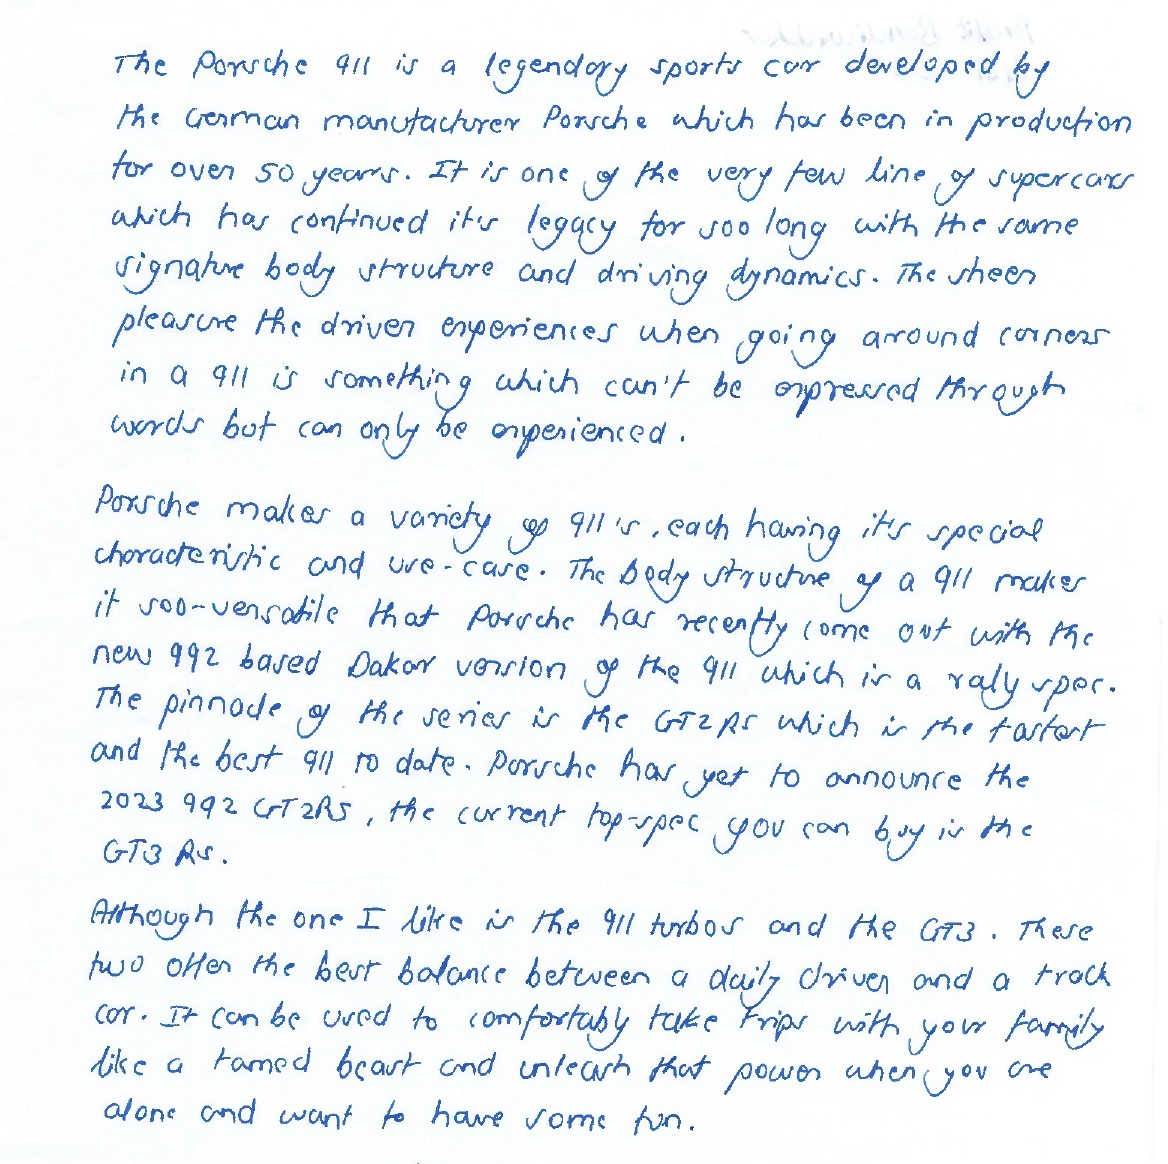 The Porsche 911 is a legendary sports car developed by
the German manufacturer Porsche which has been in production
for over 50 years. It is one of the very few line of supercars
which has continued it's legacy for soo long with the same
signature body structure and driving dynamics. The sheer
pleasure the driver experiences when going around corners
in a 911 is something which can't be expressed through
words but can only be experienced.
Porsche makes a variety of 911's, each having it's special
characteristic and use-case. The body structure of a 911 makes
it soo-versatile that Porsche has recently come out with the
new 992 based Dakar version of the 911 which is a raly spec.
The pinnacle of the series is the GT2RS which is the fastest
and the best 911 to date. Porsche has yet to announce the
2023 992 GT2RS, the current top-spec you can buy is the
GT3 RS.
Although the one I like is the 911 turbos and the GT3. These
two offer the best balance between a daily driver and a track
car. It can be used to comfortably take trips with your family
like a tamed beast and unleash that power when you are
alone and want to have some fun.